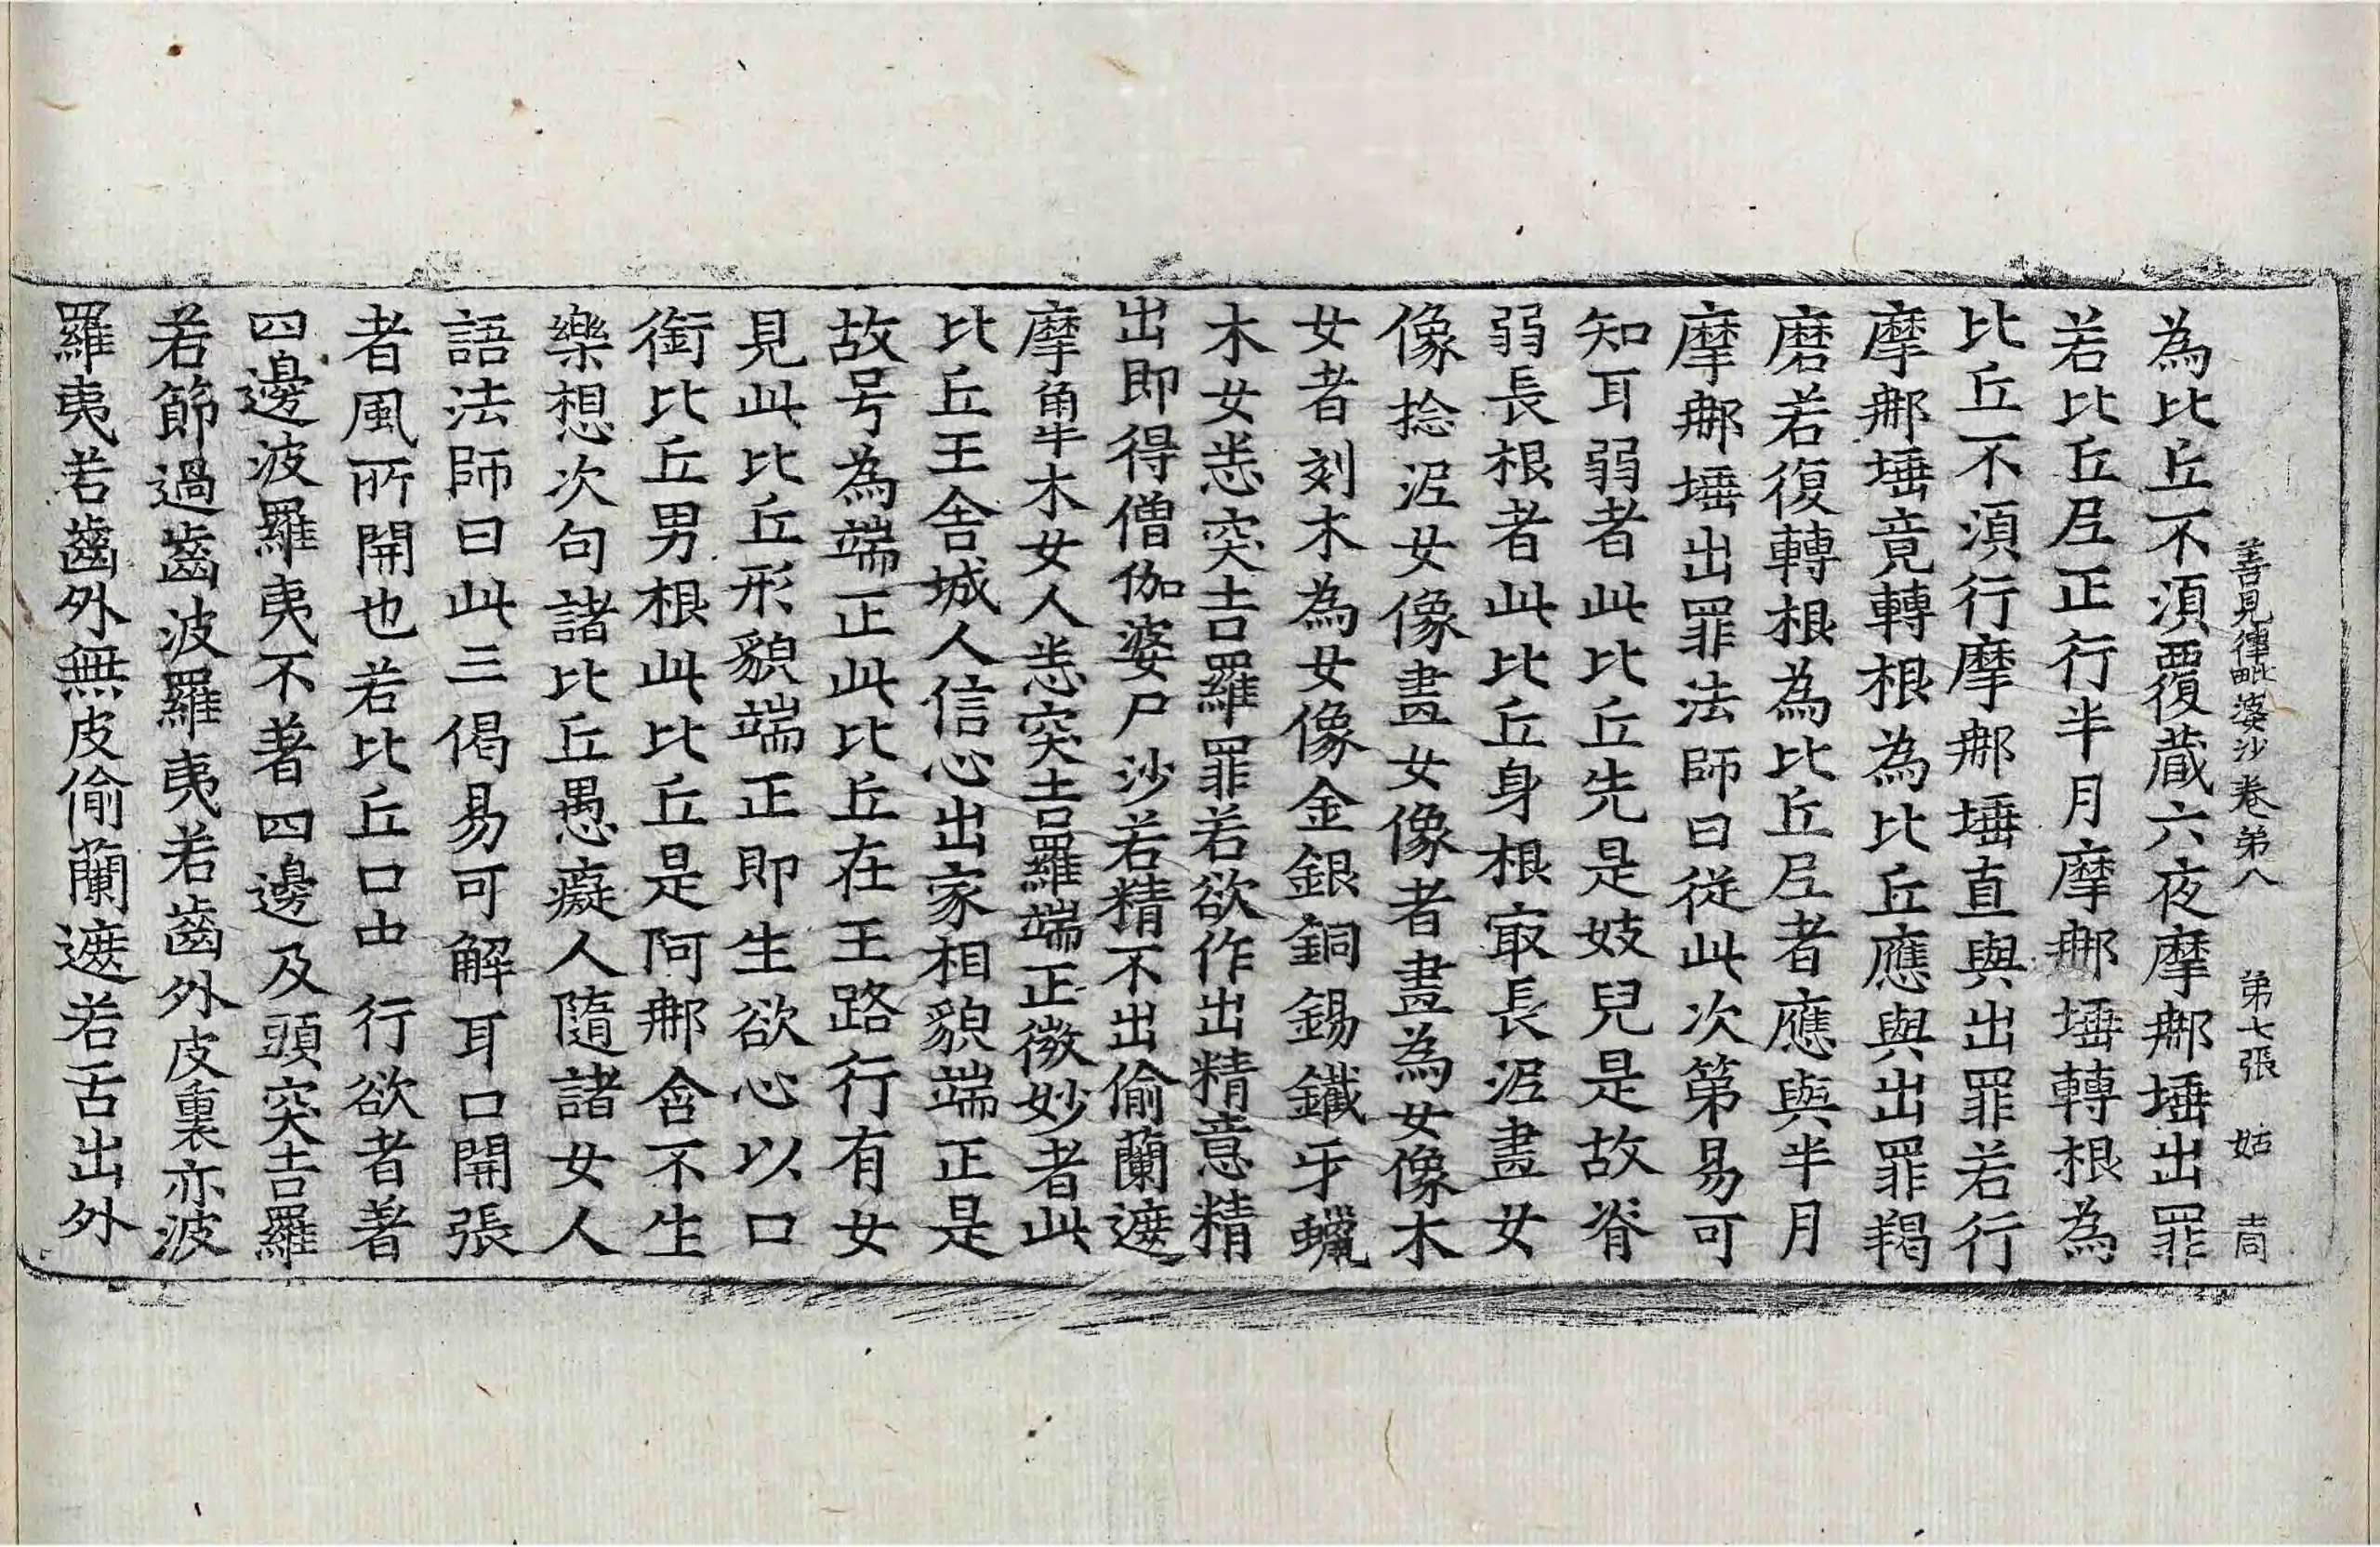 善見律毗婆沙卷第八　第七張　姑　𡔷
為比丘不湏覆蔵六夜摩㖠埵出罪
若比丘尼正行半月摩㖠埵轉根為
比丘不湏行摩㖠埵直與出罪若行
摩㖠埵竟轉根為比丘應與出罪羯
磨若復轉根為比丘尼者應與半月
摩㖠埵出罪法師曰從此次第易可
知耳弱者此比丘先是妓兒是故脊
弱長根者此比丘身根㝡長泥畫女
像捻泥女像畫女像者畫為女像木
女者刻木為女像金銀銅錫鐵牙蠟
木女悉突吉羅罪若欲作出精意精
出即得僧伽婆尸沙若精不出偷蘭遮
摩觸木女人悉突吉羅端正微妙者此
比丘王舍城人信心出家相貌端正是
故号為端正此比丘在王路行有女
見此比丘形貌端正即生欲心以口
銜比丘男根此比丘是阿㖠含不生
樂想次句諸比丘愚癡人隨諸女人
語法師曰此三偈易可解耳口開張
者風所開也若比丘口中行欲者著
四邊波羅夷不著四邊及頭突吉羅
若節過齒波羅夷若齒外皮裏亦波
羅夷若齒外無皮偷蘭遮若舌出外